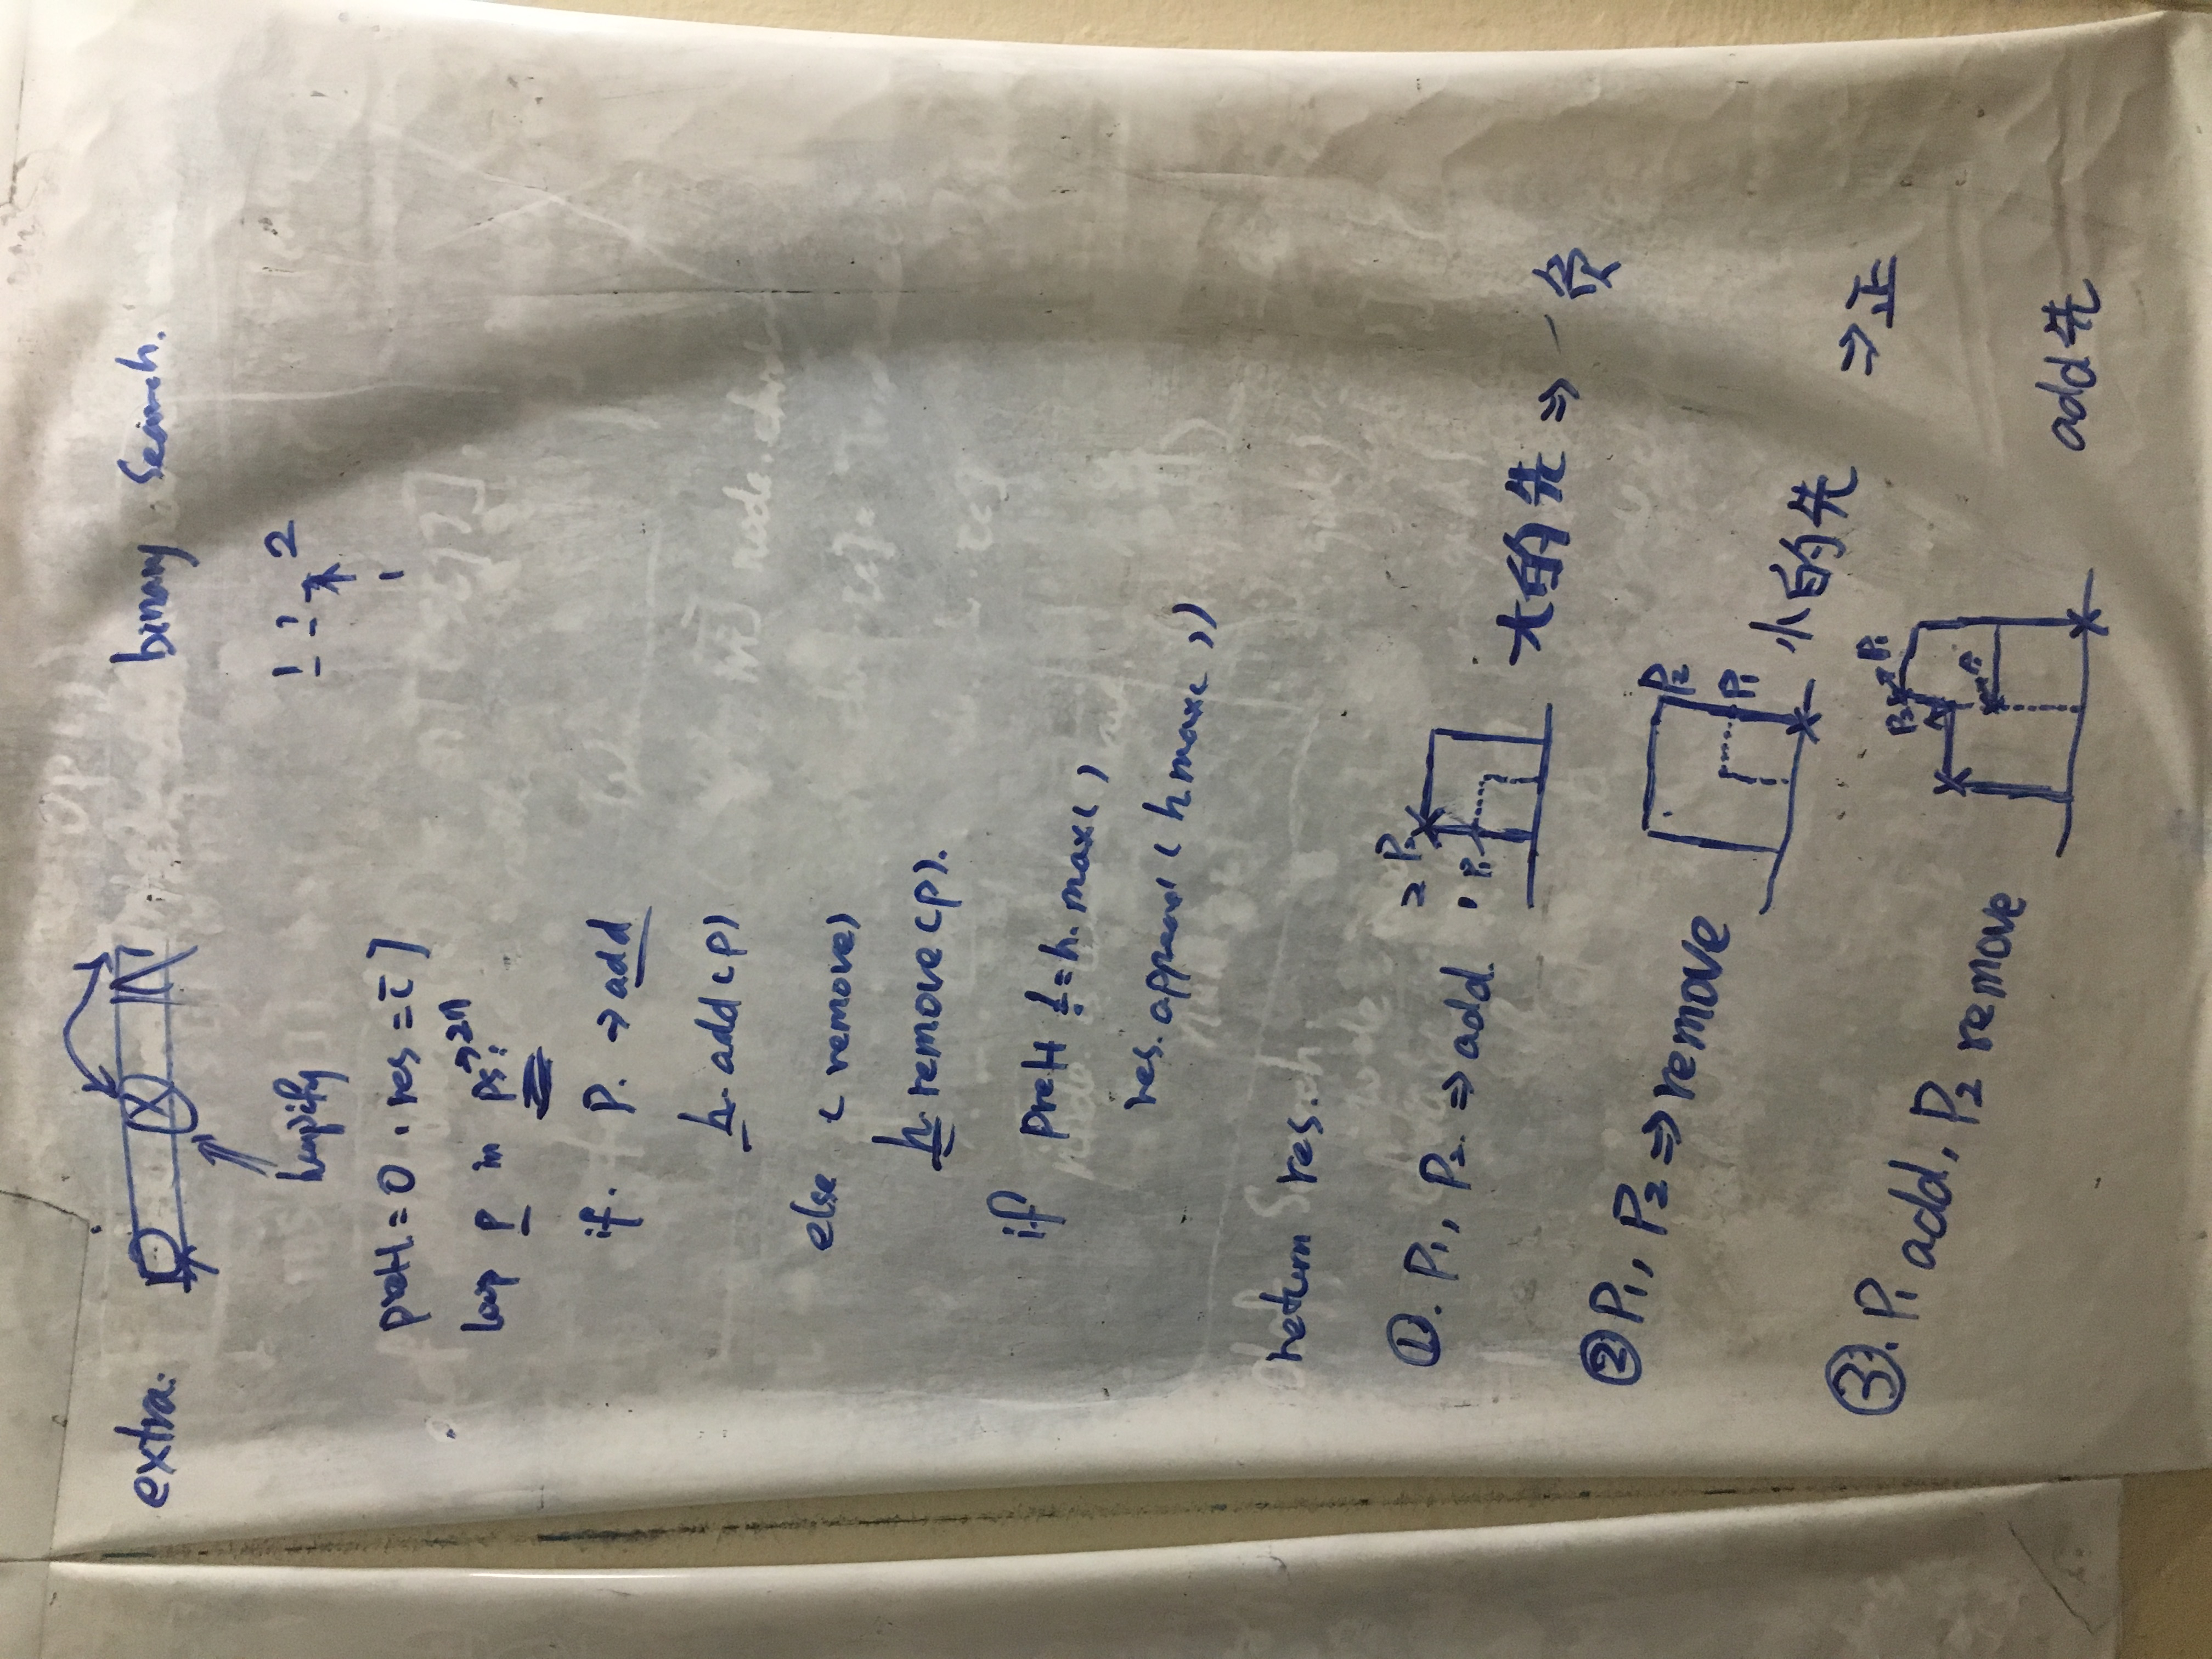 extra:
binary Search.
heapify
1 1 2
1
preH = 0 . res = [ ]
loop p in ps: → 2n
if. P. → add
h. add (p)
else ( remove)
h. remove (p).
if preH != h. max( )
res. append ( h.max( ))
return res.
①. P1, P2. ⇒ add. 2 P2
1 P1
大的先 ⇒ - 负
② P1, P2 ⇒ remove
P2
P1
小的先 ⇒ 正
③. P1 add, P2 remove
P1
P2
add 先